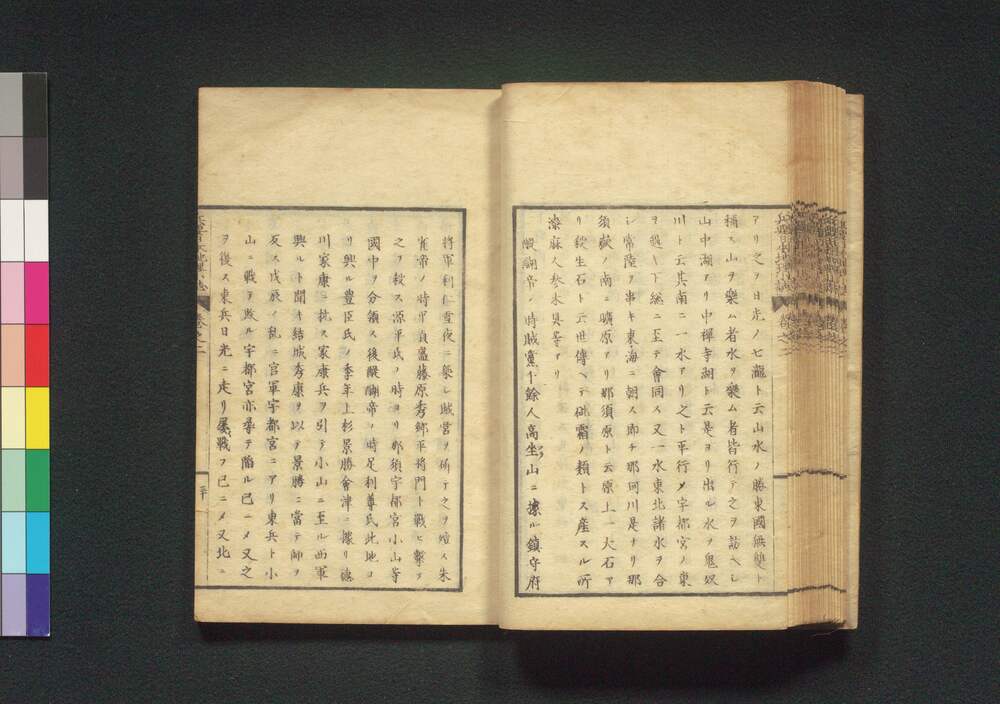 アリ之ヲ日光ノ七瀧ト云山水ノ勝東國無雙ト
稱ス山ヲ樂ム者水ヲ樂ム者皆行テ之ヲ訪ヘシ
山中湖アリ中禪寺湖ト云是ヨリ出ル水ヲ鬼奴
川ト云其南ニ一水アリ之ト平行メ宇都宮ノ東
ヲ繞リ下総ニ至テ會同ス又一水東北諸水ヲ合
シ常陸ヲ串キ東海ニ朝ス即チ那珂川是ナリ那
須嶽ノ南ニ曠原アリ那須原ト云原上一大石ア
リ殺生石ト云世傳ヘテ砒霜ノ類トス産スル所
漆麻人参木具等アリ
醍醐帝ノ時賊黨十餘人高坐山ニ據ル鎮守府
將軍利仁雪夜ニ乗シ賊営ヲ斫テ之ヲ殪ス朱
雀帝ノ時平貞盛藤原秀郷平將門ト戰ヒ撃テ
之ヲ殺ス源平氏ノ時ヨリ那須宇都宮小山等
國中ヲ分領ス後醍醐帝ノ時足利尊氏此地ヨ
リ興ル豊臣氏ノ季年上杉景勝會津ニ據リ德
川家康ニ抗ス家康兵ヲ引テ小山ニ至ル西軍
興ルト聞キ結城秀康ヲ以テ景勝ニ當テ師ヲ
反ス戊辰ノ乱ニ官軍宇都宮ニアリ東兵ト小
山ニ戰ヲ敗ル宇都宮亦尋テ陥ル已ニメ又之
ヲ復ス東兵日光ニ走リ屢戰フ已ニメ又北ニ